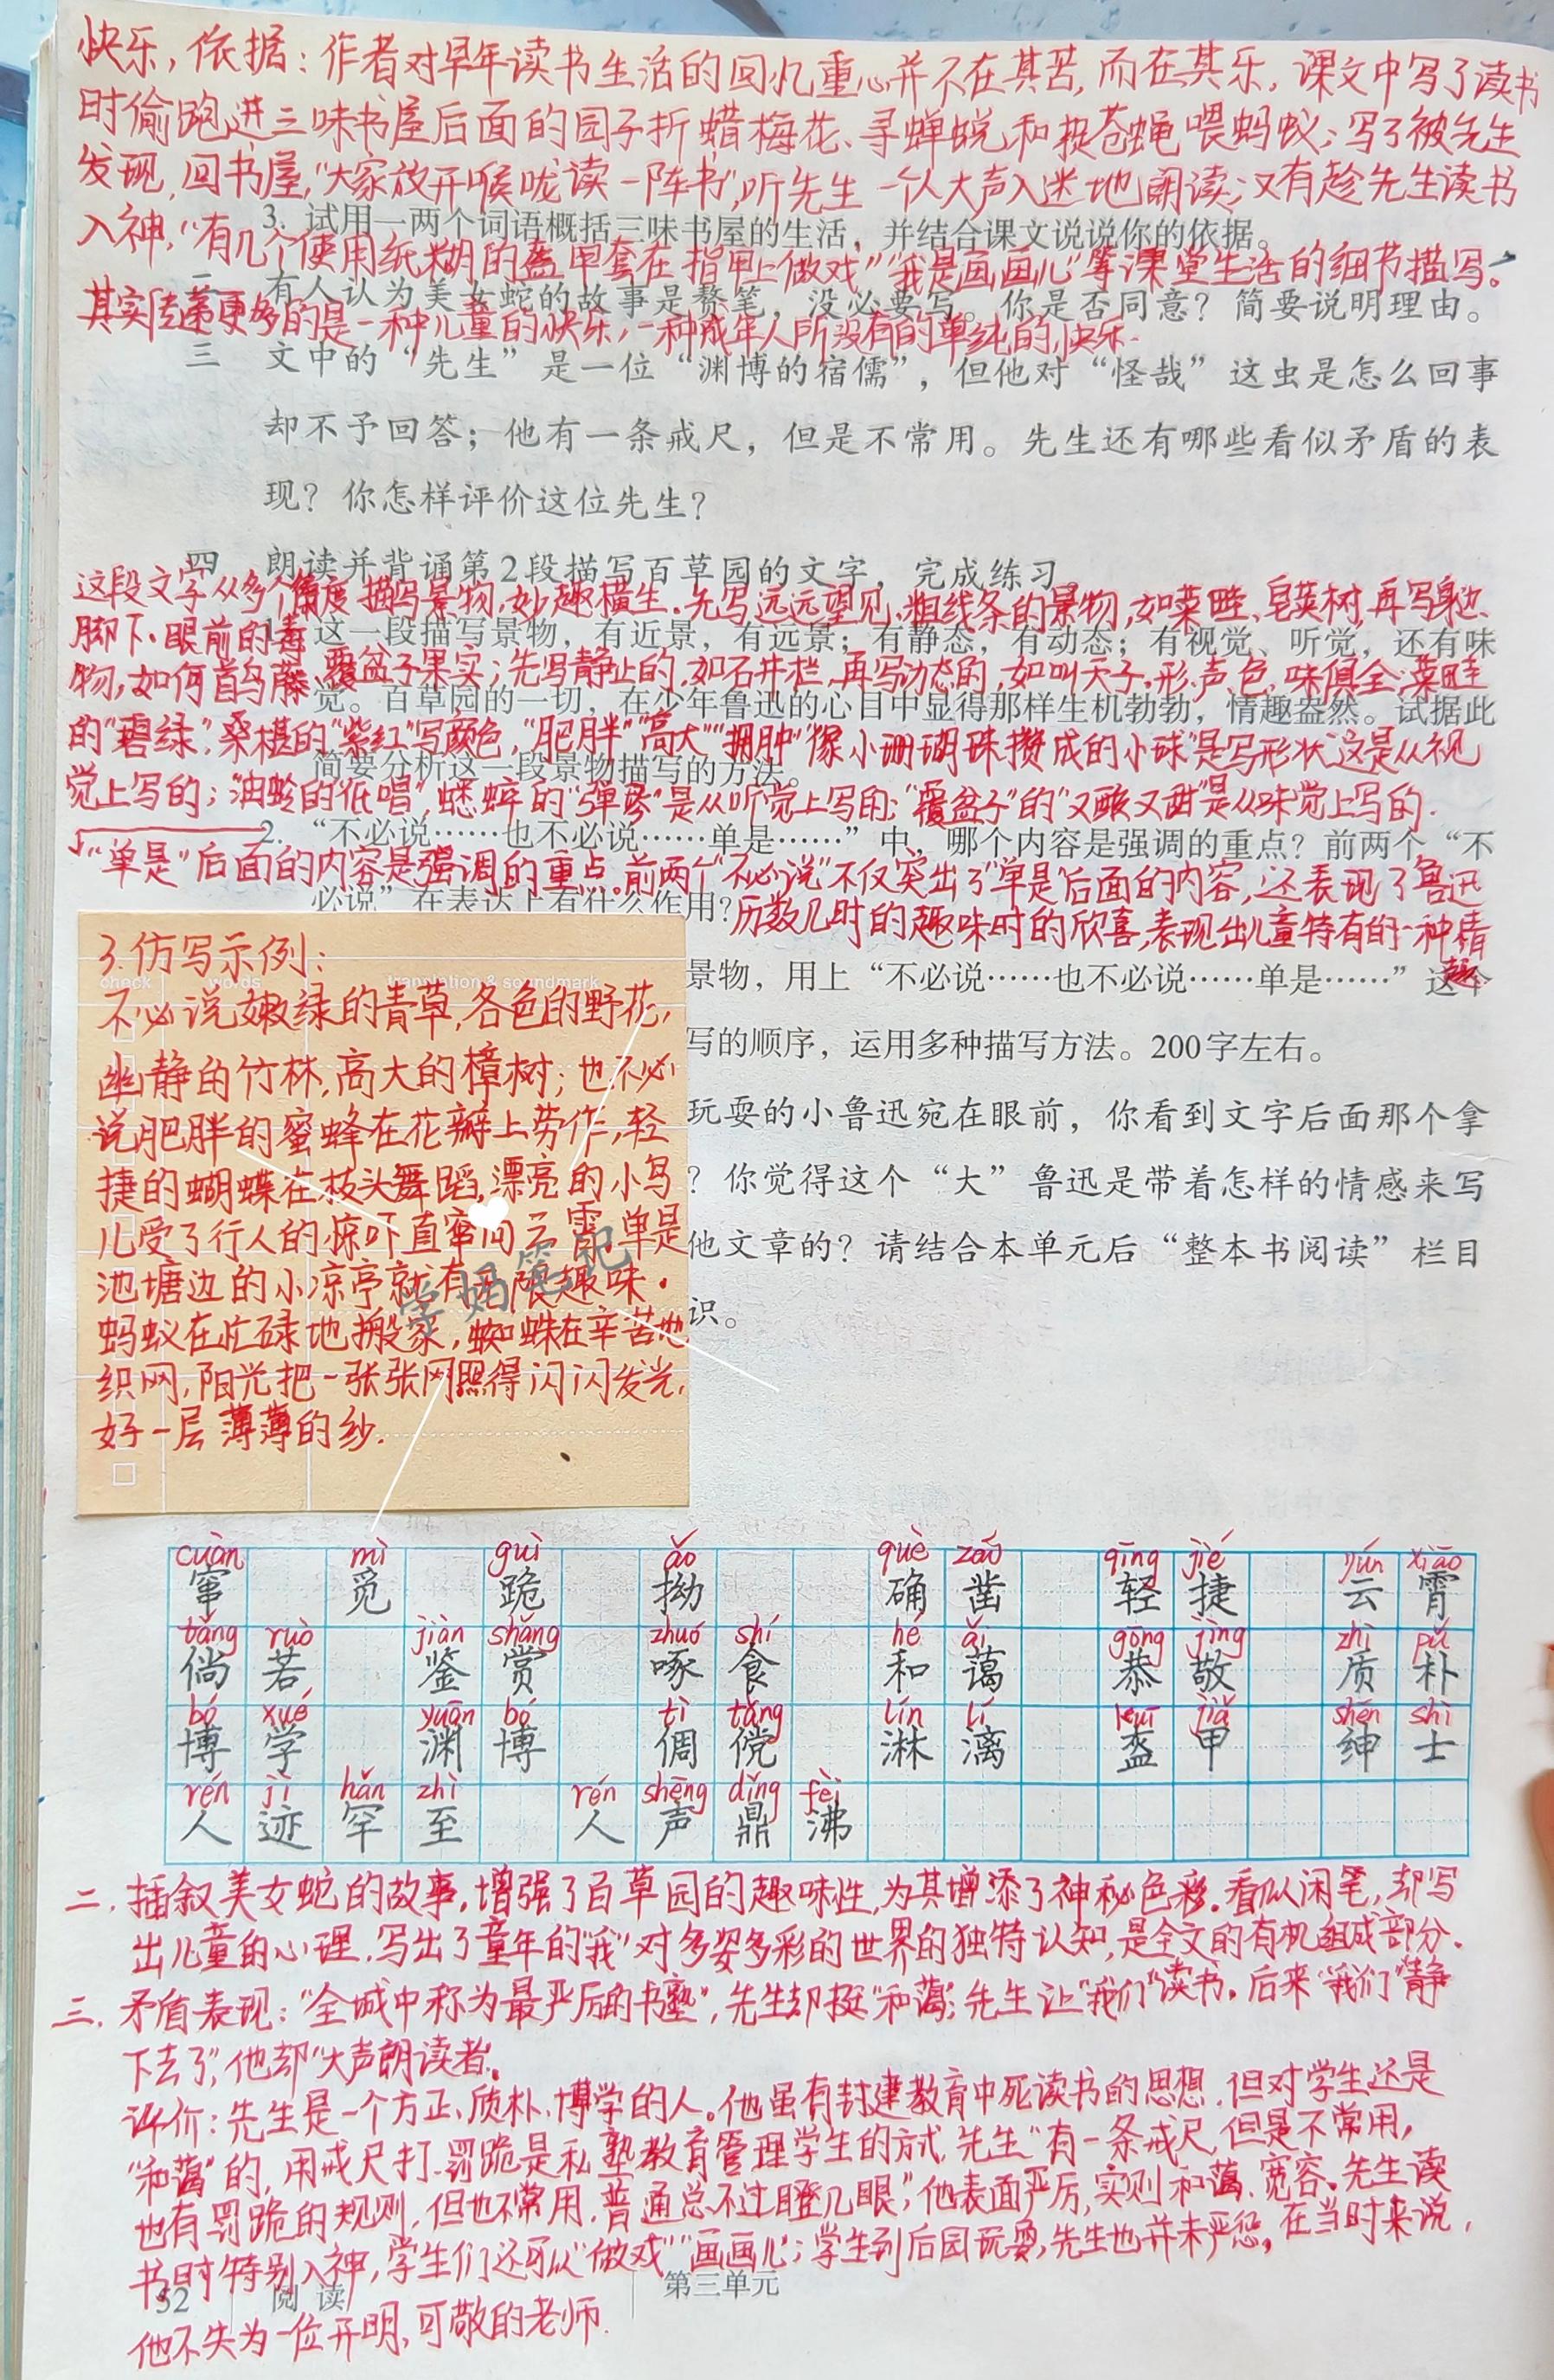 快乐,依据:作者对早年读书生活的回忆重心并不在其苦,而在其乐,课文中写了读书
时偷跑进三味书屋后面的园子折蜡梅花、寻蝉蜕和捉苍蝇喂蚂蚁;写了被先生
发现,回书屋,“大家放开喉咙读一阵书”,听先生一个人大声入迷地朗读;又有趁先生读书
3. 试用一两个词语概括三味书屋的生活,并结合课文说说你的依据。
入神,“有几个便用纸糊的盔甲套在指甲上做戏”“我是画画儿”等课堂生活的细节描写。
二 有人认为美女蛇的故事是赘笔,没必要写。你是否同意?简要说明理由。
其实传递更多的是一种儿童的快乐,一种成年人所没有的单纯的快乐.
三 文中的“先生”是一位“渊博的宿儒”,但他对“怪哉”这虫是怎么回事
却不予回答;他有一条戒尺,但是不常用。先生还有哪些看似矛盾的表
现?你怎样评价这位先生?
四 朗读并背诵第2段描写百草园的文字,完成练习。
这段文字从多个角度描写景物,妙趣横生.先写远远望见,粗线条的景物,如菜畦、皂荚树,再写身边、
1. 这一段描写景物,有近景,有远景;有静态,有动态;有视觉、听觉,还有味
脚下、眼前的毒
物,如何首乌藤、覆盆子果实;先写静止的,如石井栏,再写动态的,如叫天子.形、声、色、味俱全.菜畦
觉。百草园的一切,在少年鲁迅的心目中显得那样生机勃勃,情趣盎然。试据此
的“碧绿”,桑椹的“紫红”写颜色,“肥胖”“高大”“拥肿”“像小珊瑚珠攒成的小球”是写形状这是从视
简要分析这一段景物描写的方法。
觉上写的;油蛉的“低唱”,蟋蟀的“弹琴”是从听觉上写的;“覆盆子”的“又酸又甜”是从味觉上写的.
2. “不必说……也不必说……单是……”中,哪个内容是强调的重点?前两个“不
“单是”后面的内容是强调的重点。前两个“不必说”不仅突出了“单是”后面的内容,还表现了鲁迅
必说”在表达上有什么作用?
历数儿时的趣味时的欣喜,表现出儿童特有的一种情
趣
景物,用上“不必说……也不必说……单是……”这个
写的顺序,运用多种描写方法。200字左右。
玩耍的小鲁迅宛在眼前,你看到文字后面那个拿
?你觉得这个“大”鲁迅是带着怎样的情感来写
他文章的?请结合本单元后“整本书阅读”栏目
识。
3.仿写示例:
check words translation & soundmark
不必说嫩绿的青草,各色的野花,
幽静的竹林,高大的樟树;也不必
说肥胖的蜜蜂在花瓣上劳作,轻
捷的蝴蝶在枝头舞蹈,漂亮的小鸟
儿受了行人的惊吓直窜向云霄.单是
池塘边的小凉亭就有无限趣味.
学妈笔记
蚂蚁在忙碌地搬家,蜘蛛在辛苦地
织网,阳光把一张张网照得闪闪发光,
好一层薄薄的纱.
cuàn mì guì ǎo què záo qīng jié yún xiāo
窜 觅 跪 拗 确凿 轻捷 云霄
tǎng ruò jiàn shǎng zhuó shí hé ǎi gōng jìng zhì pǔ
倘若 鉴赏 啄食 和蔼 恭敬 质朴
bó xué yuān bó tì tǎng lín lí kuī jiǎ shēn shì
博学 渊博 倜傥 淋漓 盔甲 绅士
rén jì hǎn zhì rén shēng dǐng fèi
人迹罕至 人声鼎沸
二.插叙美女蛇的故事,增强了百草园的趣味性,为其增添了神秘色彩.看似闲笔,却写
出儿童的心理.写出了童年的“我”对多姿多彩的世界的独特认知,是全文的有机组成部分.
三.矛盾表现:“全城中称为最严厉的书塾”,先生却挺“和蔼”;先生让“我们”读书.后来“我们”“静
下去了”,他却“大声朗读者”.
评价:先生是一个方正、质朴、博学的人。他虽有封建教育中死读书的思想.但对学生还是
“和蔼”的,用戒尺打、罚跪是私塾教育管理学生的方式,先生“有一条戒尺,但是不常用,
也有罚跪的规则,但也不常用.普通总不过瞪几眼”,他表面严厉,实则和蔼、宽容.先生读
书时特别入神,学生们还可以“做戏”“画画儿”;学生到后园玩耍,先生也并未严惩。在当时来说,
52 阅读 第三单元
他不失为一位开明,可敬的老师.